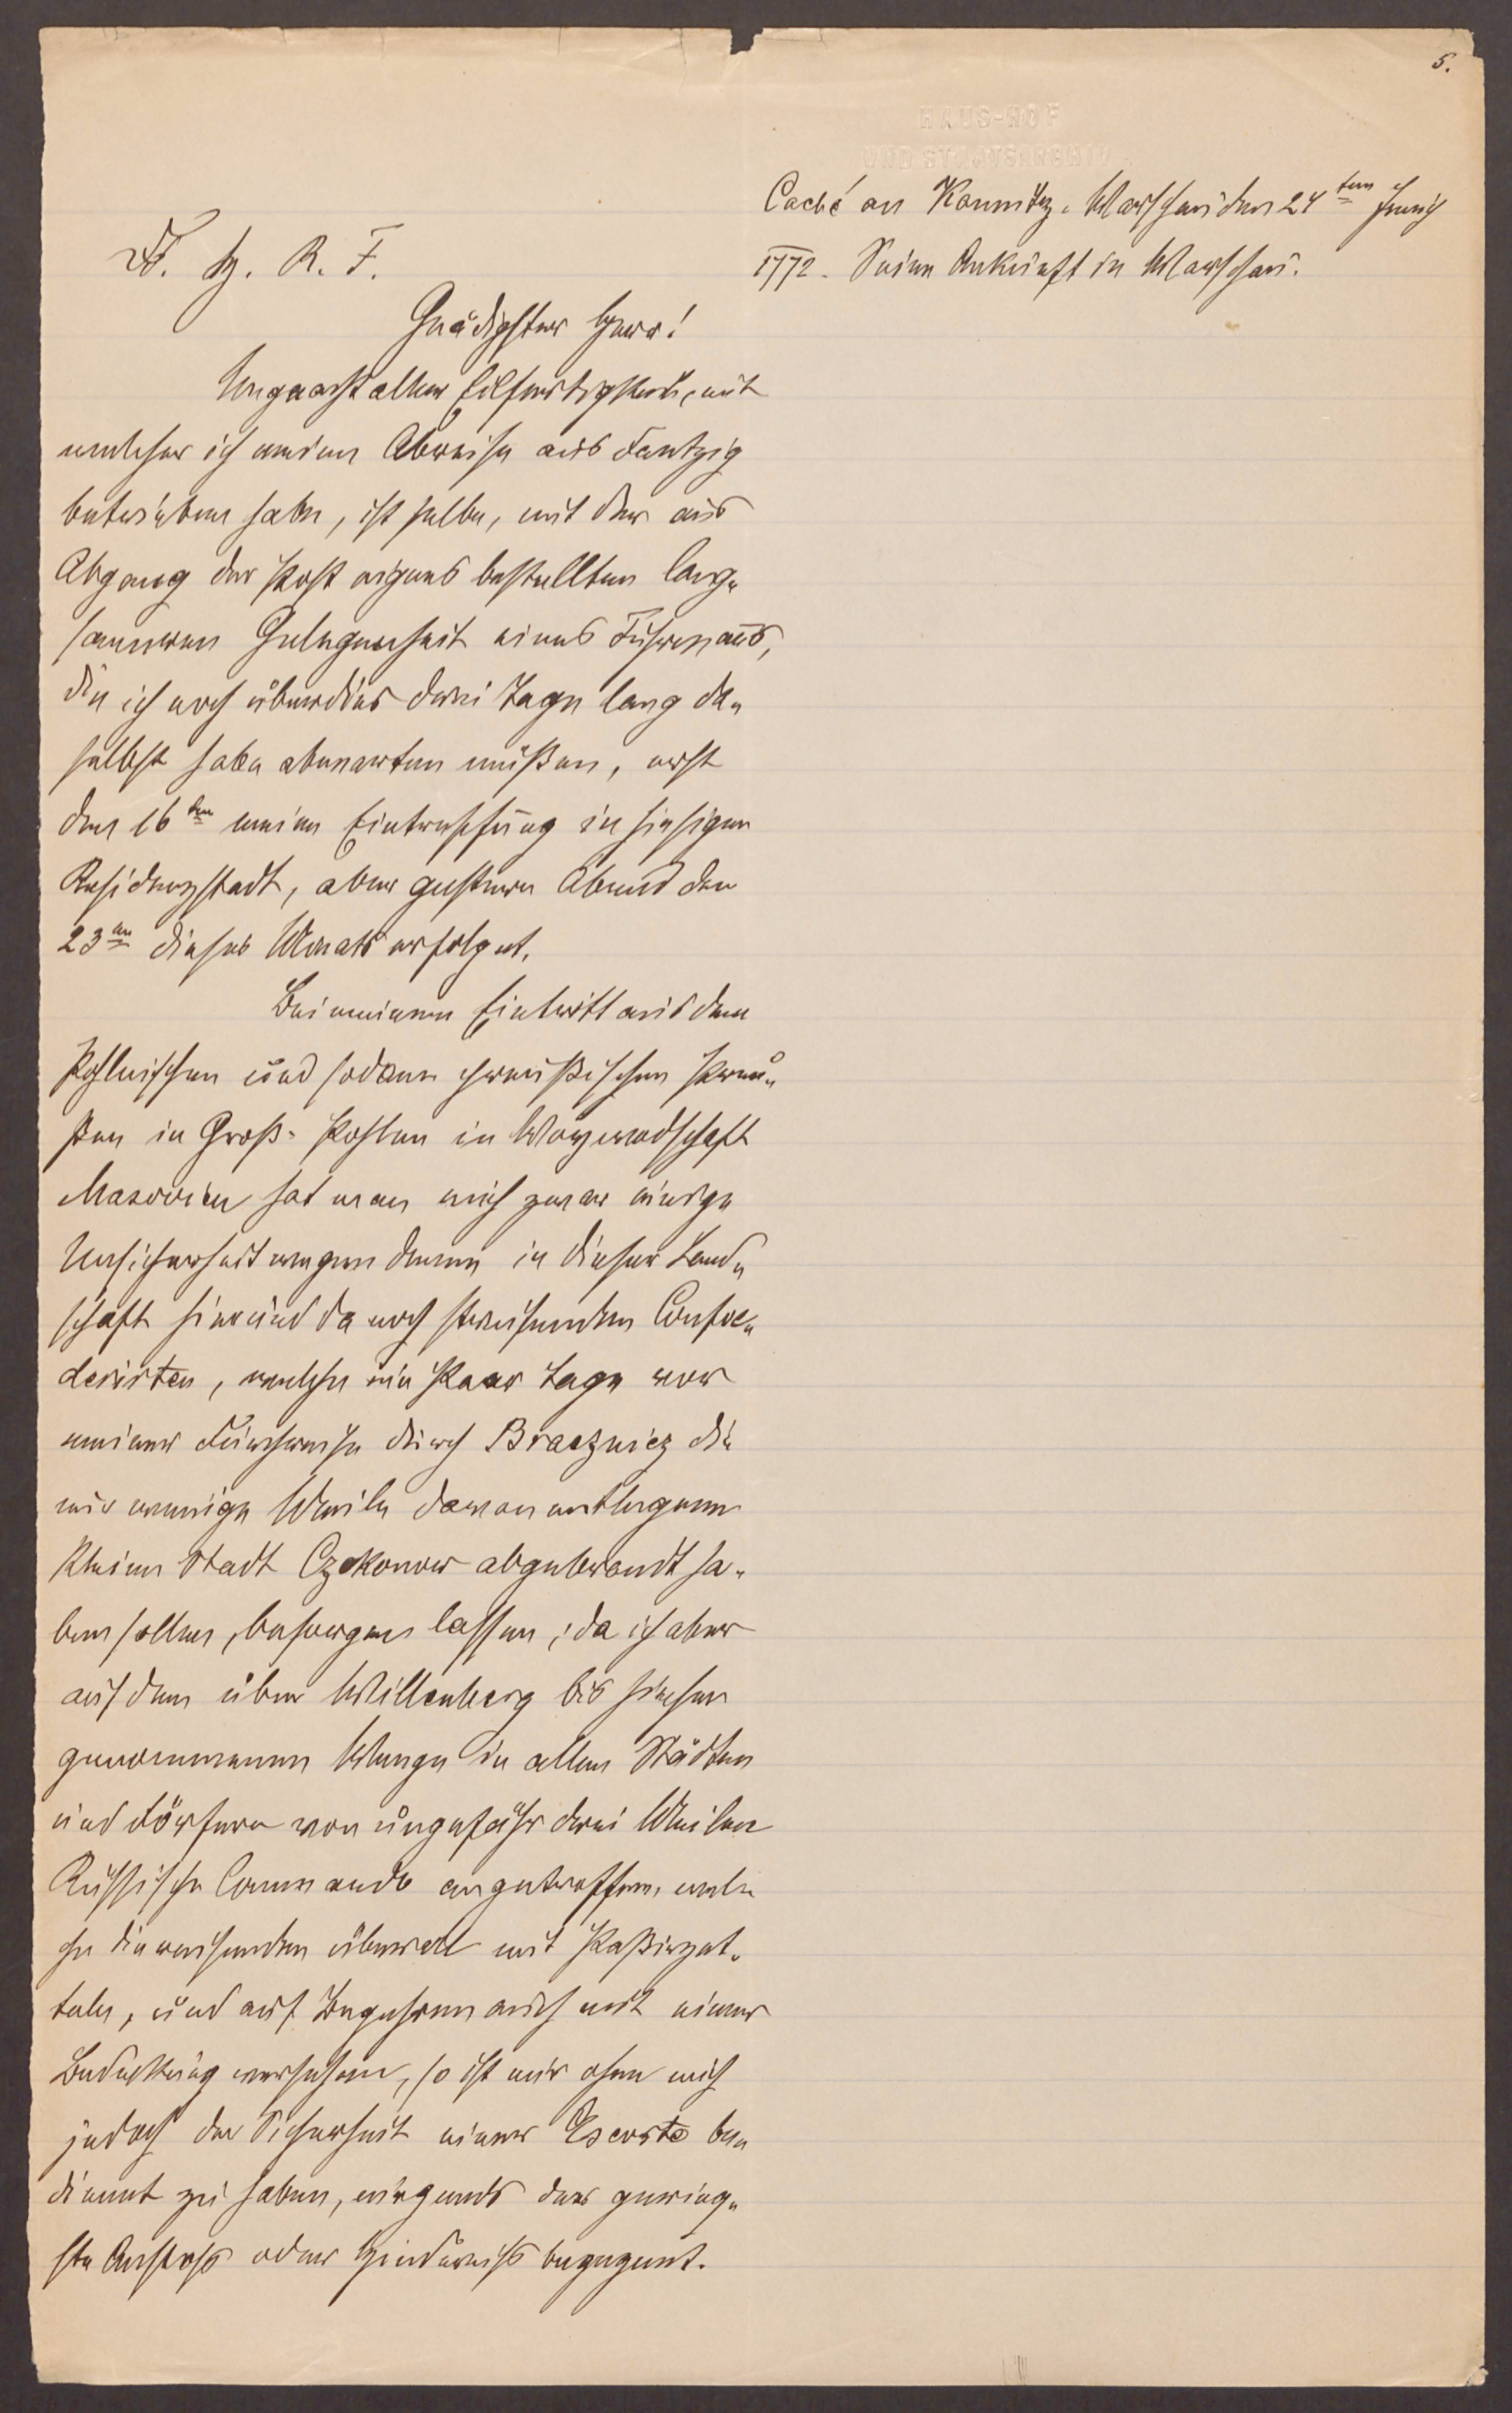 5.
HAUS-HOF
UND STAATSARCHIV
Caché an Kaunitz. Warschau den 24ten Junij
1772. Seine Ankunft in Warschau.
D. H. R. F.
Gnädigster Herr!
Ungeacht aller Eilfertigkeit, mit
welcher ich meine Abreise aus Dantzig
betrieben habe, ist selbe, mit der aus
Abgang der Post eigens bestellten lang-
sameren Gelegenheit eines Fuhrmanns,
die ich noch überdies drei Tage lang da-
selbst habe abwarten müßen, erst
den 16ten meine Eintreffung in hiesiger
Residenzstadt, aber gestern Abend den
23ten dieses Monats erfolget.
Bei meinem Eintritt aus dem
Pohlnischen und sodann preußischen Preu-
ßen in Groß-Pohlen in Woywodschaft
Masovien hat man mich zwar einige
Unsicherheit wegen denen in dieser Land-
schaft hin und da noch streifenden Confoe-
derirten, welche ein Paar Tage vor
meiner Durchreise durch Bracznicz die
nur wenige Meile davon entlegene
kleine Stadt Czekonow abgebrandt ha-
ben sollen, besorgen lassen; da ich aber
auf dem über Willenberg bis hieher
genommenen Weege in allen Städten
und Dörfern von ungefähr drei Meilen
Russische Commando angetroffen, wel-
che die reisenden überall mit Paßirzet-
teln, und auf Begehren auch mit einer
Bedeckung versehen, so ist mir ohne mich
jedoch der Sicherheit einer Escorte be-
dienet zu haben, nirgends der gering-
ste Anstoß oder Hinderniß begegnet.